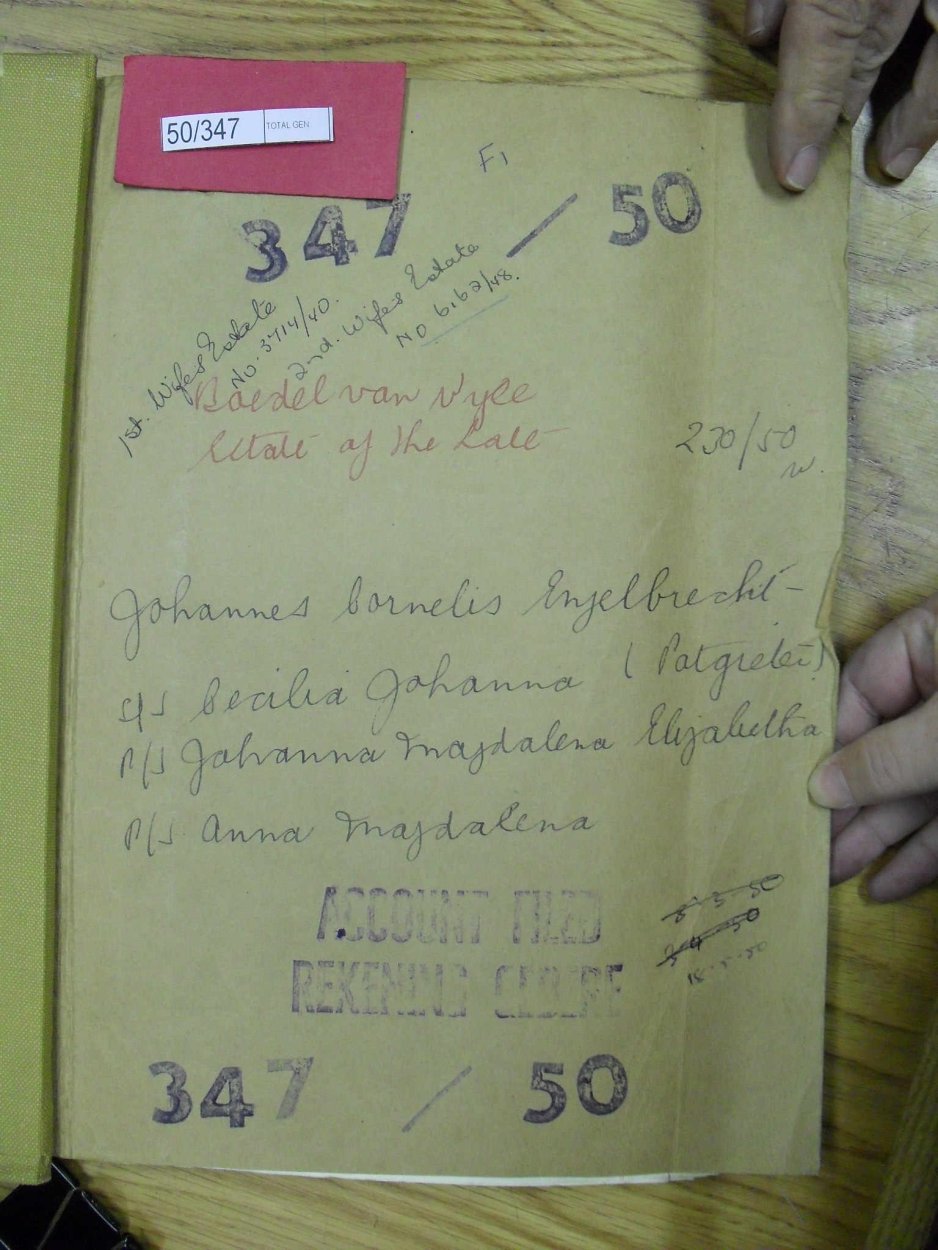 50/347 TOTAL GEN
F1
347 / 50
1st. Wifes Estate
No. 3714/40.
2nd. Wifes Estate
No 6162/48.
Boedel van Wyle
Estate of the Late
230/50
Johannes Cornelis Engelbrecht
s/s Cecilia Johanna (Potgieter)
P/S Johanna Magdalena Elizabetha
P/S Anna Magdalena
ACCOUNT FILED
REKENING GELEWER
347 / 50